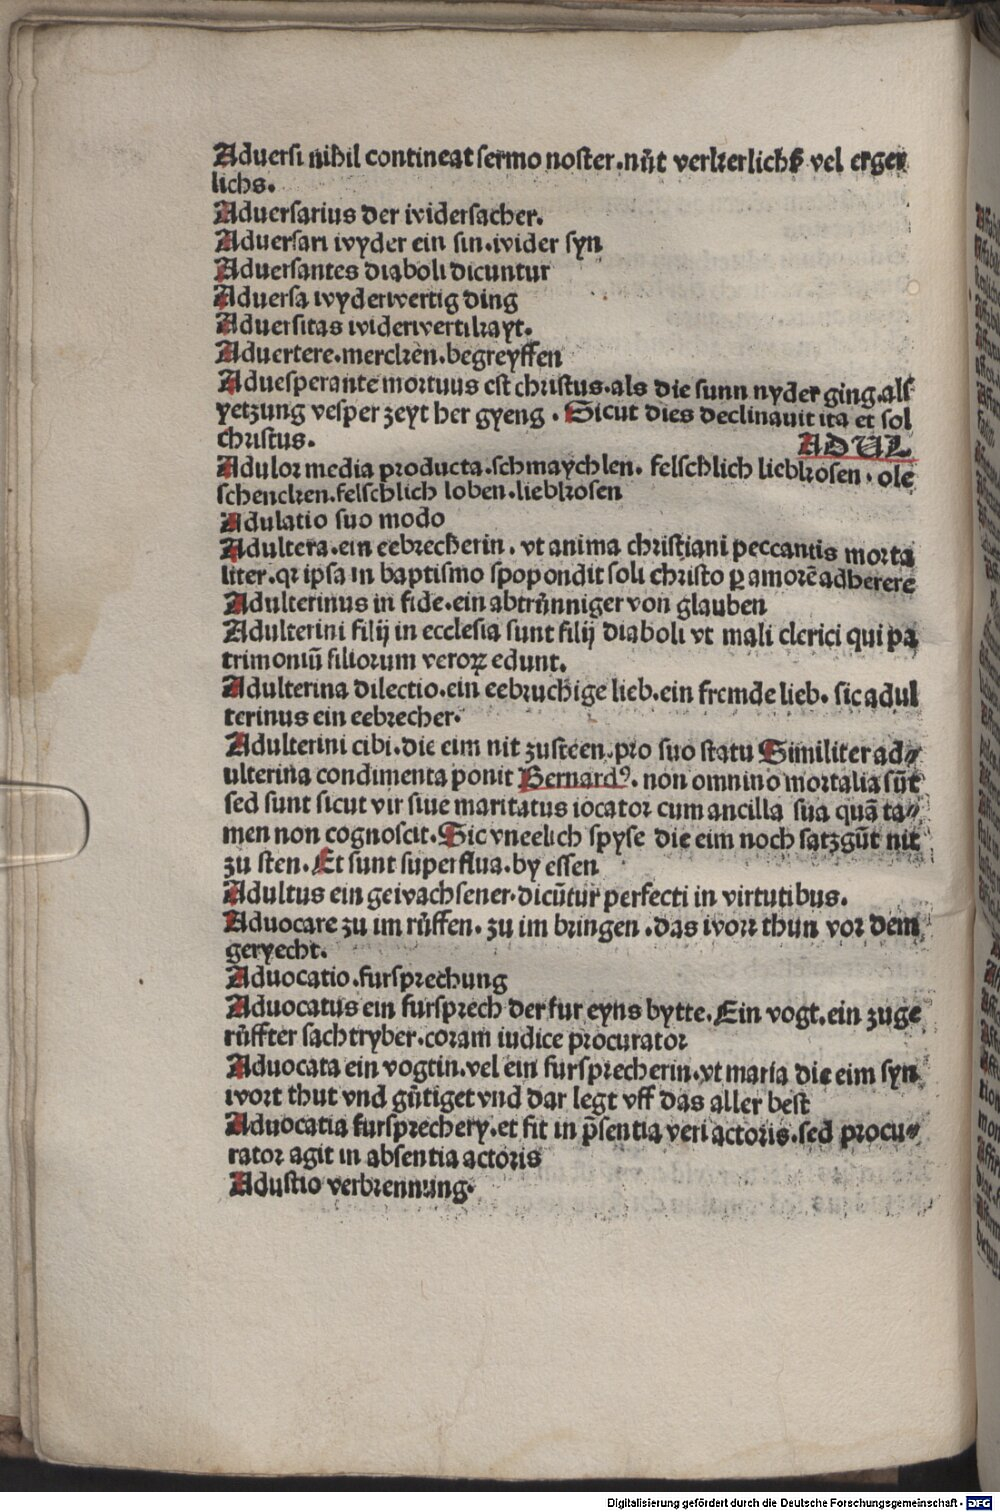 Adversi nihil contineat sermo noster.nüt verkerlichs vel erger
lichs.
Adversarius der widersacher.
Adversari wyder ein sin.wider syn
Adversantes diaboli dicuntur
Adversa wyderwertig ding
Adversitas widerwertikayt.
Advertere.mercken.begreyffen
Advesperante mortuus est christus.als die sunn nyder ging.als
yetzung vesper zeyt her gyeng. Sicut dies declinavit ita et sol
christus.
ADUL
Adulor media producta.schmaychlen. felschlich liebkosen. ole
schencken.felschlich loben.liebkosen
Adulatio suo modo
Adultera.ein eebrecherin. vt anima christiani peccantis morta
liter.qr ipsa in baptismo spopondit soli christo ꝑ amorē adherere
Adulterinus in fide.ein abtrünniger von glauben
Adulterini filij in ecclesia sunt filij diaboli vt mali clerici qui pa
trimoniū filiorum veroꝝ edunt.
Adulterina dilectio.ein eebruchige lieb.ein fremde lieb. sic adul
terinus ein eebrecher.
Adulterini cibi.die eim nit zusteen.pro suo statu Similiter ad⸗
ulterina condimenta ponit Bernardꝰ. non omnino mortalia sūt
sed sunt sicut vir siue maritatus iocator cum ancilla sua quā ta⸗
men non cognoscit.Sic vneelich spyse die eim noch satzgūt nit
zu sten.Et sunt superflua.by essen
Adultus ein gewachsener.dicūtur perfecti in virtutibus.
Advocare zu im rüffen. zu im bringen.das wort thun vor dem
geryecht.
Advocatio.fursprechung
Advocatus ein fursprech der fur eyns bytte.Ein vogt.ein zuge
rüffter sachtryber.coram iudice procurator
Advocata ein vogtin.vel ein fursprecherin.vt maria die eim syn
wort thut vnd gütiget vnd dar legt vff das aller best
Advocatia fursprechery.et fit in p̄sentia veri actoris.sed procu⸗
rator agit in absentia actoris
Adustio verbrennung.
Digitalisierung gefördert durch die Deutsche Forschungsgemeinschaft - DFG